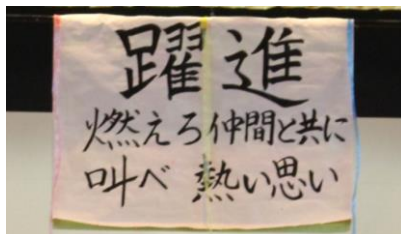 躍進
燃えろ仲間と共に
叫べ 熱い思い